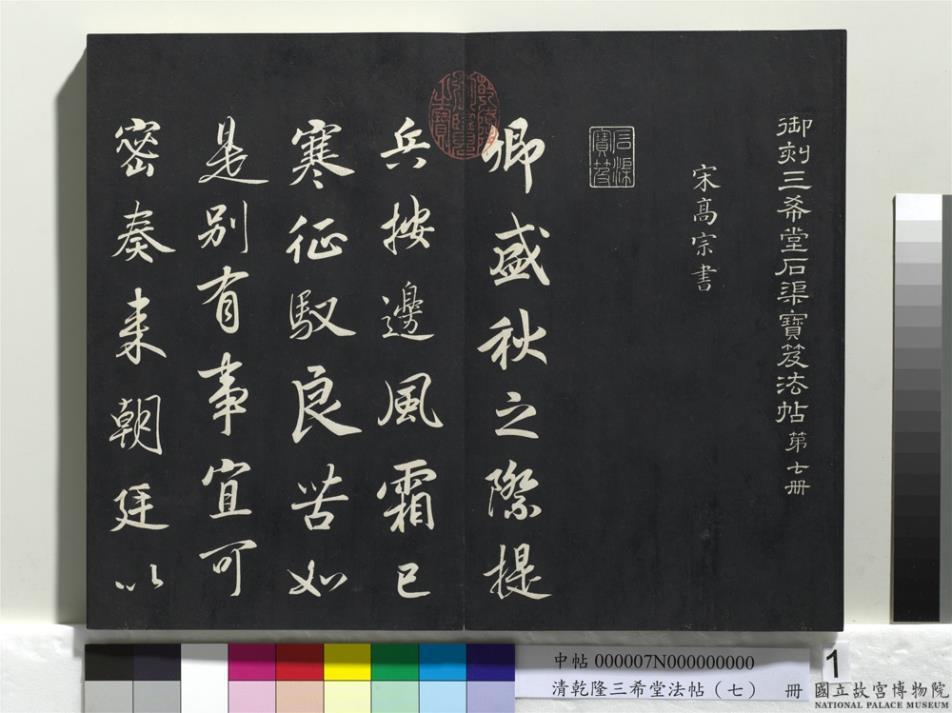 御刻三希堂石渠寶笈法帖第七冊
宋高宗書
石渠寶笈
卿盛秋之際提
兵按邊風霜已
寒征馭良苦如
是別有事宜可
密奏來朝廷以
中帖 000007N000000000
清乾隆三希堂法帖(七) 冊
1
國立故宮博物院
NATIONAL PALACE MUSEUM